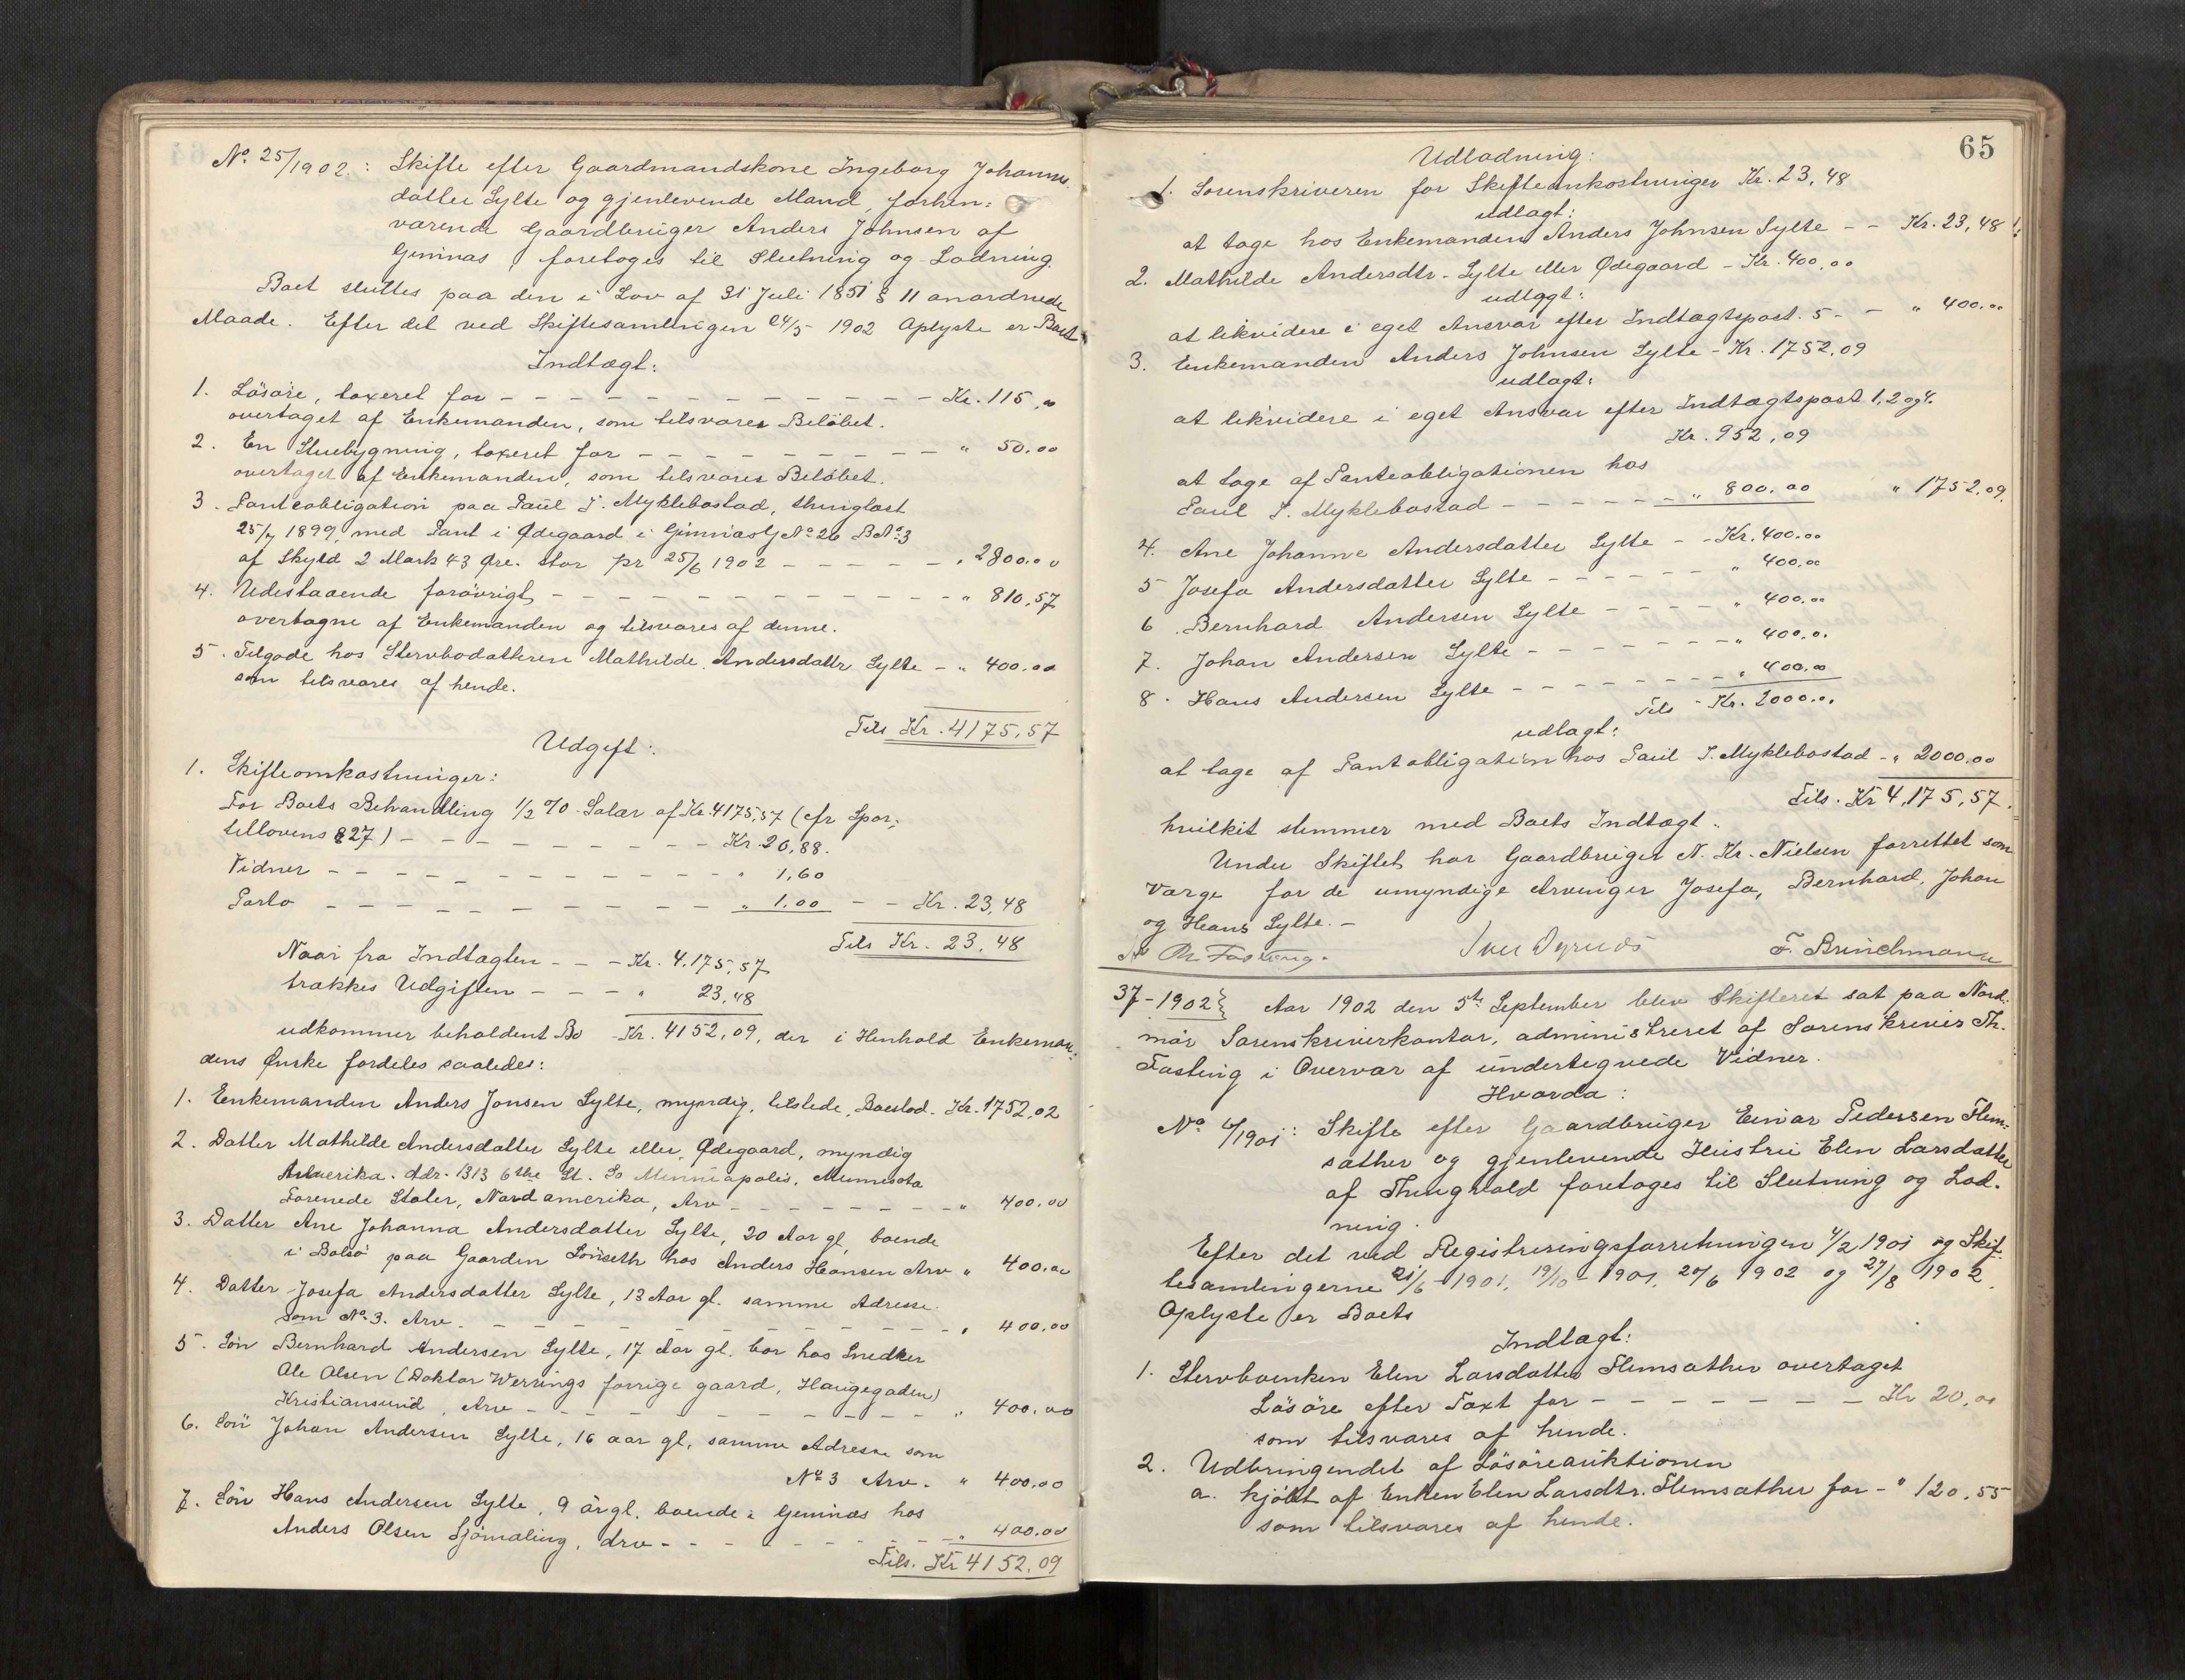 No. 25/1902.: Skifte efter Gaardmandskone Ingeborg Johanns-
datter Sylte og gjenlevende Mand, forhen-
værende Gaardbruger Anders Johnsen af
Gimnæs, foretoges til Slutning og Lodning.
Boet sluttes paa den i Lov af 31 Juli 1851 § 11 anordnede
Maade. Efter det ved Skiftesamlingen 24/5 1902 Oplyste er Boets
Indtægt:
1. Løsøre, taxeret for - - - Kr. 115,00
overtaget af Enkemanden, som tilsvarer Beløbet.
2. En Stuebygning, taxeret for - - - " 50.00
overtaget af Enkemanden, som tilsvarer Beløbet.
3. Panteobligation paa Paul J. Myklebostad, thinglæst
25/7 1899, med Pant i Ødegaard i Gimnæs G No 26 B No 3
af Skyld 2 Mark 43 Øre. Stor pr 25/6 1902 - - - " 2800.00
4. Udestaaende forøvrigt - - - " 810,57
overtagne af Enkemanden og tilsvares af denne.
5. Tilgode hos Stervbodatteren Mathilde Andersdattr Sylte - " 400.00
som tilsvares af hende.
Tils Kr. 4175,57
Udgift:
1. Skifteomkostninger:
For Boets Behandling 1/2 % Salær af Kr. 4175,57 (cfr Spor-
tellovens § 27) - - - Kr. 20,88.
Vidner - - - " 1,60
Porto - - - " 1.00 - - Kr. 23,48
Tils Kr. 23,48
Naar fra Indtægten - - - Kr. 4.175,57
trækkes Udgiften - - - " 23,48
udkommer beholdent Bo - Kr. 4152,09, der i Henhold Enkeman-
dens Ønske fordeles saaledes:
1. Enkemanden Anders Jonsen Sylte, myndig, tilstede, Boeslod - Kr. 1752,02
2. Datter Mathilde Andersdatter Sylte eller Ødegaard, myndig
Amerika. Adr. 1313 6the St. So Minniapolis, Munnesota
Forenede Stater, Nordamerika, Arv - - - " 400.00
3. Datter Ane Johanna Andersdatter Sylte, 20 Aar gl, boende
i Bolsø paa Gaarden Lønseth hos Anders Hansen Arv " 400.00
4. Datter Josefa Andersdatter Sylte, 13 Aar gl. samme Adresse
som No. 3. Arv. - - - " 400.00
5. Søn Bernhard Andersen Sylte, 17 Aar gl. bor hos Snedker
Ole Olsen (Doktor Werrings forrige gaard, Haugegaden)
Kristiansund, Arv - - - " 400.00
6. Søn Johan Andersen Sylte, 16 aar gl, samme Adresse som
No 3 Arv. " 400.00
7. Søn Hans Andersen Sylte, 9 år gl. boende i Gimnæs hos
Anders Olsen Sjømæling, Arv - - - " 400.00
Tils. Kr 4152.09
65
Udlodning:
1. Sorenskriveren for Skifteomkostninger Kr. 23,48
udlagt:
at tage hos Enkemanden Anders Johnsen Sylte - - Kr. 23,48
2. Mathilde Andersdtr. Sylte eller Ødegaard - Kr. 400,00
udlagt:
at likvidere i eget Ansvar efter Indtægtspost. 5 - - " 400.00
3. Enkemanden Anders Johnsen Sylte - Kr. 1752,09
udlagt:
at likvidere i eget Ansvar efter Indtægtspost 1, 2 og 4.
Kr. 952,09
at tage af Panteobligationen hos
Paul J. Myklebostad - - - " 800.00 " 1752,09.
4. Ane Johanne Andersdatter Sylte - - Kr. 400.00
5 Josefa Andersdatter Sylte - - - " 400.00
6. Bernhard Andersen Sylte - - - " 400.00
7. Johan Andersen Sylte - - - " 400.00
8. Hans Andersen Sylte - - - " 400.00
Tils - Kr. 2000.00
udlagt:
at tage af Pantobligation hos Paul J. Myklebostad - " 2000,00
Tils. Kr 4.175,57.
hvilket stemmer med Boets Indtægt.
Under Skiftet har Gaardbruger N. Kr. Nielsen forrettet som
Værge for de umyndige Arvinger Josefa, Bernhard, Johan
og Hans Sylte. -
Th Fasting. Iver F. Brinchmann
37-1902} Aar 1902 den 5te September blev Skifteret sat paa Nord-
mør Sorenskriverkontor, administreret af Sorenskriver Th.
Fasting i Overvær af undertegnede Vidner.
Hvorda:
No 4/1901: Skifte efter Gaardbruger Einar Pedersen Flem-
sæther og gjenlevende Hustru Elen Larsdatter
af Thingvold foretages til Slutning og Lod-
ning.
Efter det ved Registreringsforretningen 4/2 1901 og Skif-
tesamlingerne 21/6 - 1901, 19/10 - 1901, 20/6 1902 og 27/8 1902.
Oplyste er Boets
Indtægt:
1. Stervboenken Elen Larsdatter Flemsæther overtaget
Løsøre efter Taxt for - - - Kr 20,00
som tilsvares af hende.
2. Udbringendet af Løsøreauktionen
a. kjøbt af Enken Elen Larsdtr. Flemsæther for - " 120,55
som tilsvares af hende.